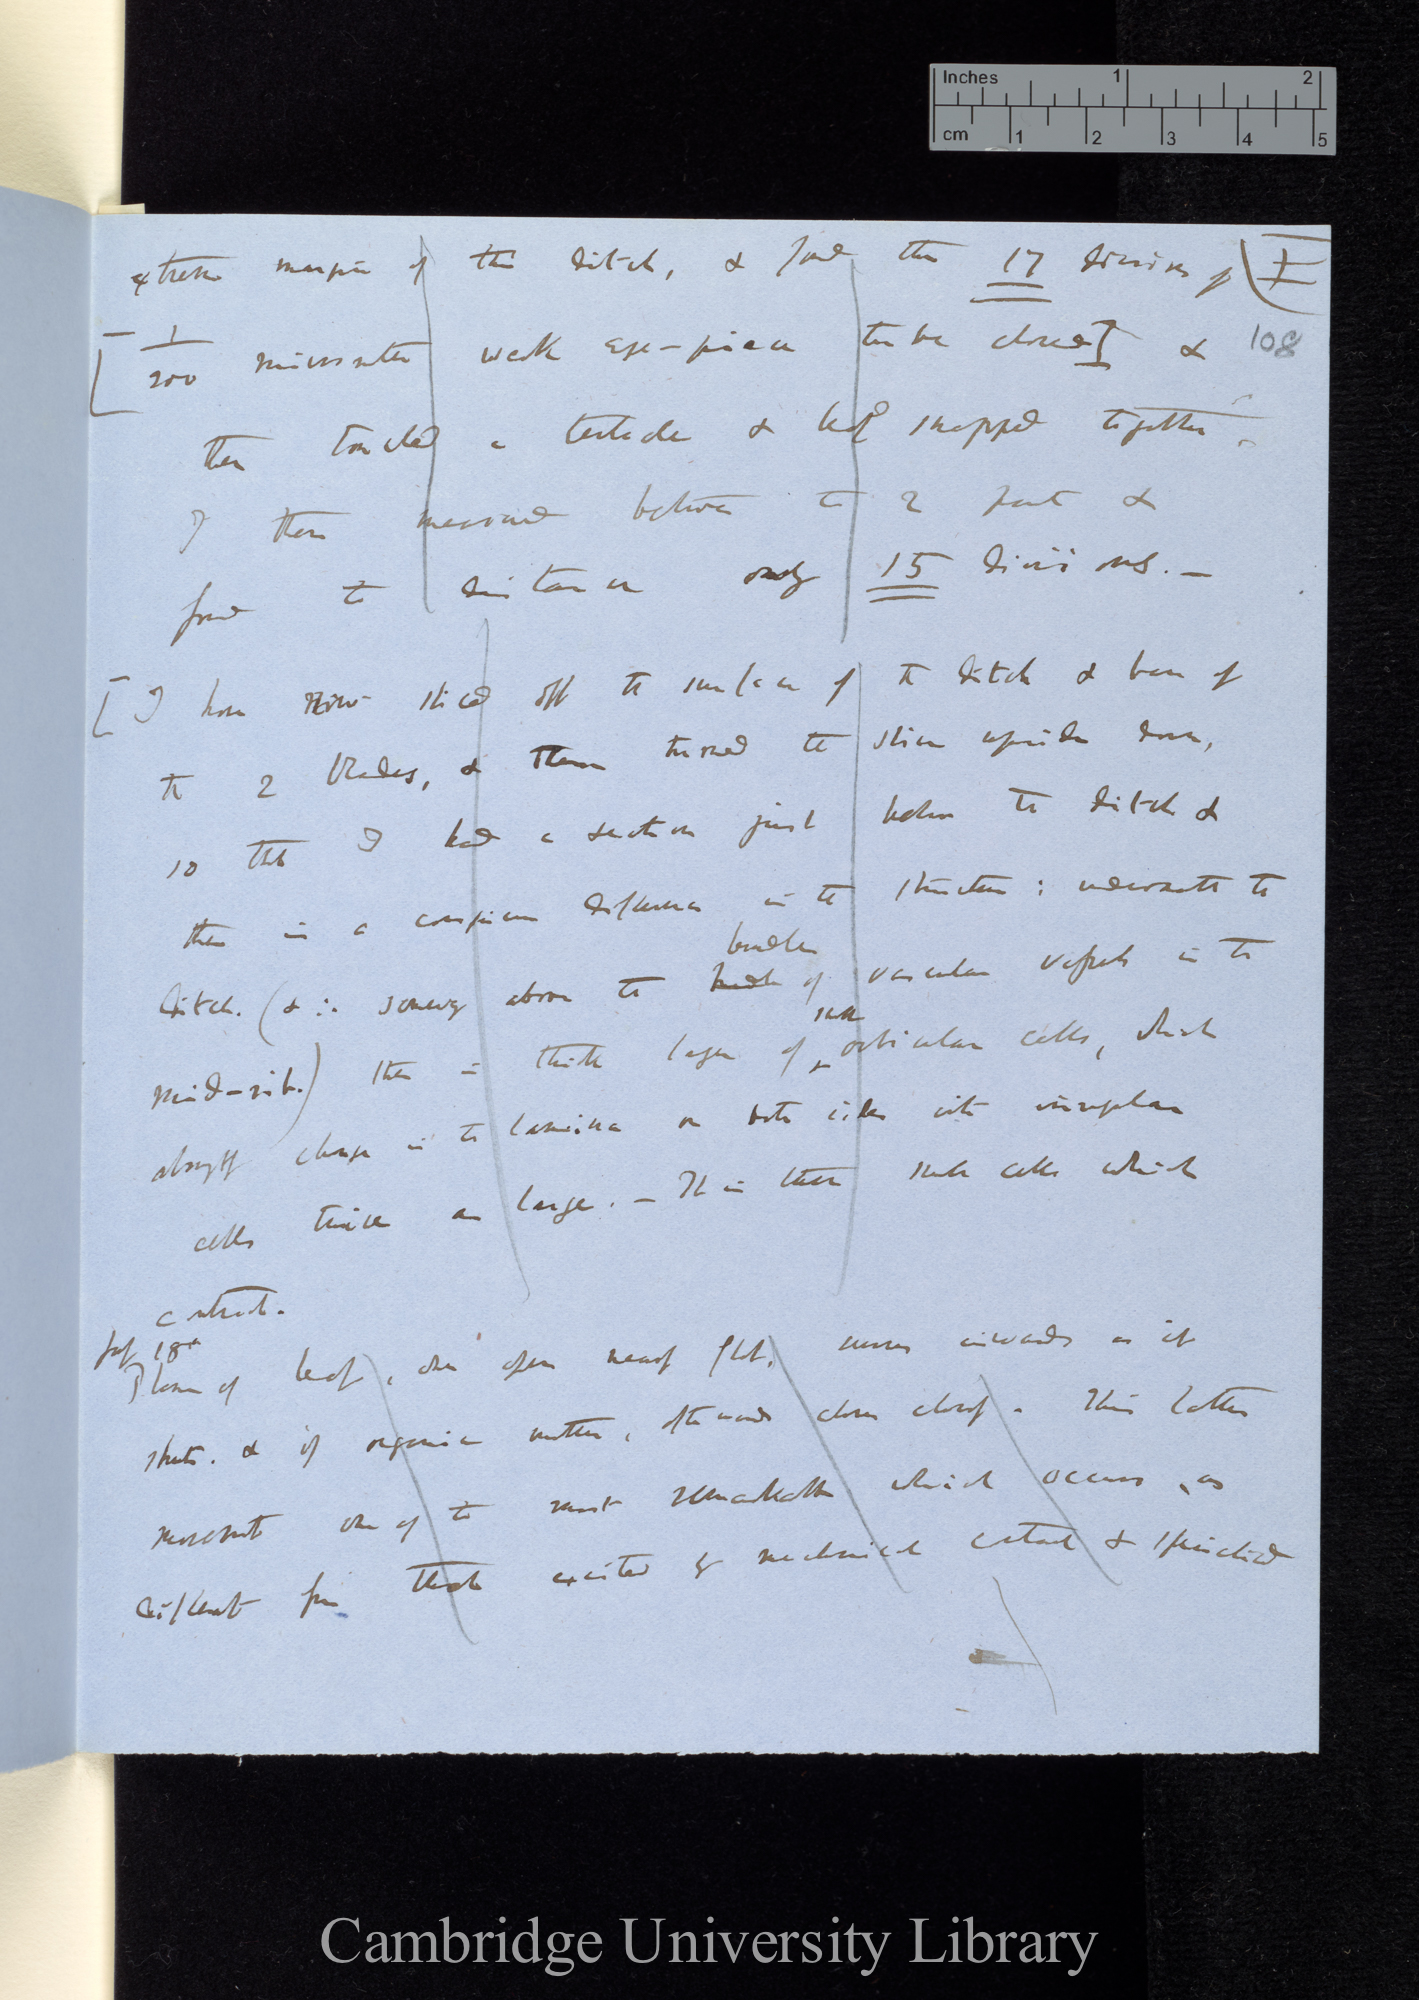 Inches 1 2
cm 1 2 3 4 5
extreme margin of the ditch, & found the 17 divisions of I
[1/200 micrometer weak eye-piece tube closed] & 108
then touched a tentacle & leaf snapped together.
I then measured between te 2 points &
found te distance only 15 divisions. —
[I have now sliced off te surface of te ditch & base of
te 2 blades, & then turned te slice upside down,
so that I had a section just below te ditch &
there is a conspicuous difference in te structure: underneath te
bundle
ditch. (& ∴ above te of vascular vessels in te
small
mid-rib.) there is thick layer of orbicular cells, which
abruptly change in te lamina on both sides into irregular
cells twice as large. — It is these small cells which
contract.
18th
of leaf, when open nearly flat, curves inwards as it
shuts. & if organic matter, afterwards closes closely. This latter
movement one of te most remarkable which occurs, as
different from those excited by mechanical
Cambridge University Library